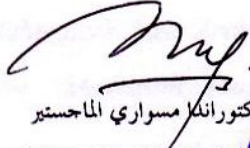 كتوراندا مسواري الماجستير